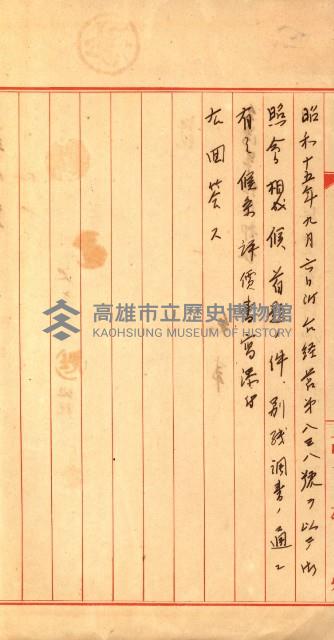 昭和十五年九月六日附台経営第八三八號ヲ以テ御
照會相成候首題ノ件、別紙調書ノ通ニ
有之候条評價書寫添付
右回答ス
高雄市立歷史博物館
KAOHSIUNG MUSEUM OF HISTORY